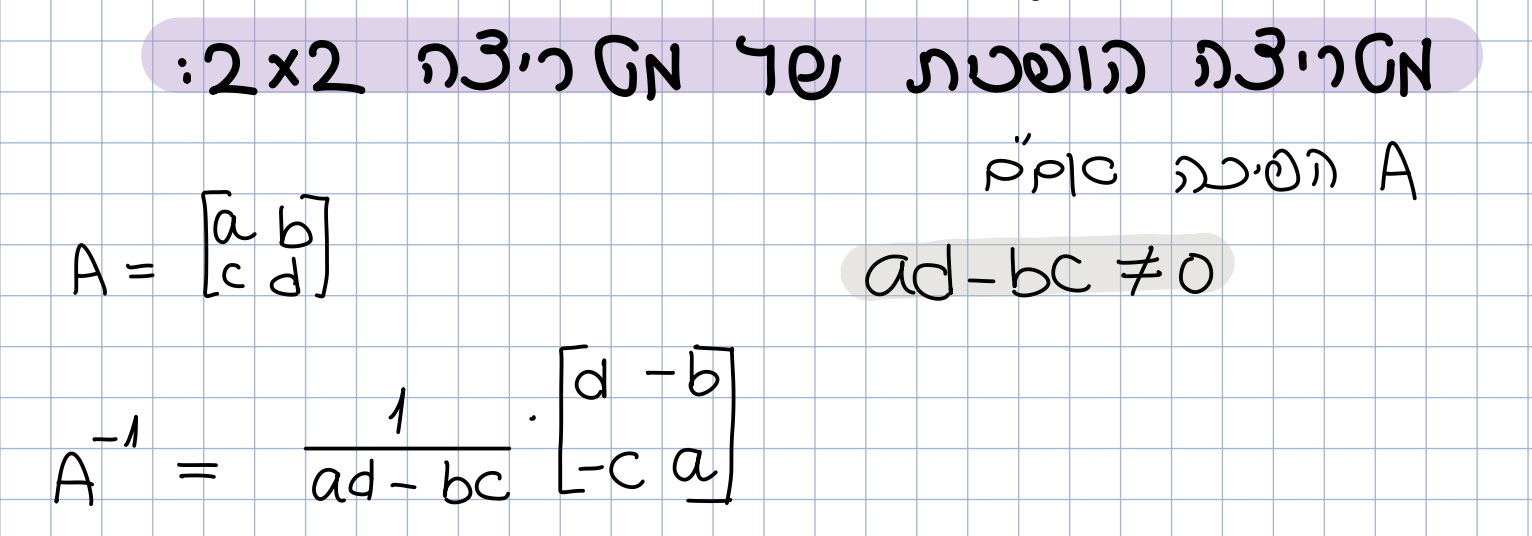 מטריצה הופכית של מטריצה 2x2:
A הפיכה אםם"
ad-bc ≠0
A = [a b
c d]
A^-1 = 1/(ad-bc) · [d -b
-c a]